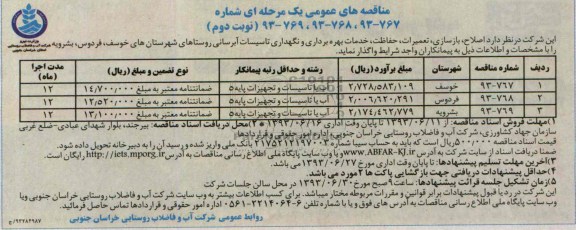 مناقصه های عمومی یک مرحله ای شماره
۹۳-۷۶۷، ۹۳-۷۶۸، ۹۳-۷۶۹ (نوبت دوم)
این شرکت در نظر دارد اصلاح، بازسازی، تعمیرات، حفاظت، خدمات بهره برداری و نگهداری تاسیسات آبرسانی روستاهای شهرستان های خوسف، فردوس، بشرویه
را با مشخصات و اطلاعات ذیل به پیمانکاران واجد شرایط واگذار نماید.
ردیف شماره مناقصه شهرستان مبلغ برآورد (ریال) رشته و حداقل رتبه پیمانکار نوع تضمین و مبلغ (ریال) مدت اجرا (ماه)
۱ ۹۳-۷۶۷ خوسف ۲,۷۲۸,۵۸۳,۱۰۹ آب یا تاسیسات و تجهیزات پایه ۵ ضمانتنامه معتبر به مبلغ ۱۴,۷۰۰,۰۰۰ ۱۲
۲ ۹۳-۷۶۸ فردوس ۲,۰۰۶,۶۲۰,۲۹۱ آب یا تاسیسات و تجهیزات پایه ۵ ضمانتنامه معتبر به مبلغ ۱۲,۵۲۰,۰۰۰ ۱۲
۳ ۹۳-۷۶۹ بشرویه ۲,۱۷۴,۴۶۲,۷۷۹ آب یا تاسیسات و تجهیزات پایه ۵ ضمانتنامه معتبر به مبلغ ۱۳,۱۰۰,۰۰۰ ۱۲
۱) مهلت فروش اسناد مناقصه: از ۱۳۹۳/۰۶/۱۱ تا پایان وقت اداری مورخ ۱۳۹۳/۰۶/۱۶ ۲) محل دریافت اسناد مناقصه: بیرجند، بلوار شهدای عبادی-ضلع غربی
سازمان جهاد کشاورزی، شرکت آب و فاضلاب روستایی خراسان جنوبی، اداره امور حقوقی و قراردادها
قیمت اسناد مناقصه ۵۰۰,۰۰۰ ریال است که باید به حساب سیبا شماره ۲۱۷۵۲۱۲۱۹۷۰۰۳ بانک ملی واریز شده و رسید آن را به دبیرخانه تحویل نمایند.
ضمنا دریافت اسناد از سایت شرکت به آدرس www.ABFAR-KJ.ir و یا وب سایت پایگاه ملی اطلاع رسانی مناقصات به آدرس http://iets.mporg.ir رایگان است.
۳) آخرین مهلت تسلیم پیشنهادها: تا پایان وقت اداری مورخ ۱۳۹۳/۰۶/۲۷ می باشد.
۴) حداقل پیشنهادات دریافتی جهت بازگشایی پاکت ها ۲ مورد می باشد.
۵) زمان تشکیل جلسه قرائت پیشنهادها: ساعت ۹ صبح مورخ ۱۳۹۳/۰۶/۳۰ در محل سالن جلسات شرکت
این شرکت در رد یا قبول پیشنهادات برابر قوانین و مقررات مربوطه مختار میباشد. برای کسب اطلاعات بیشتر به وب سایت شرکت آب و فاضلاب روستایی و یا
وب سایت پایگاه ملی اطلاع رسانی مناقصات به آدرس های فوق و یا با شماره تلفن ۶-۲۲۱۴۰۶۴-۰۵۶۱ اداره امور حقوقی و قراردادها تماس حاصل فرمایید.
روابط عمومی شرکت آب و فاضلاب روستایی خراسان جنوبی